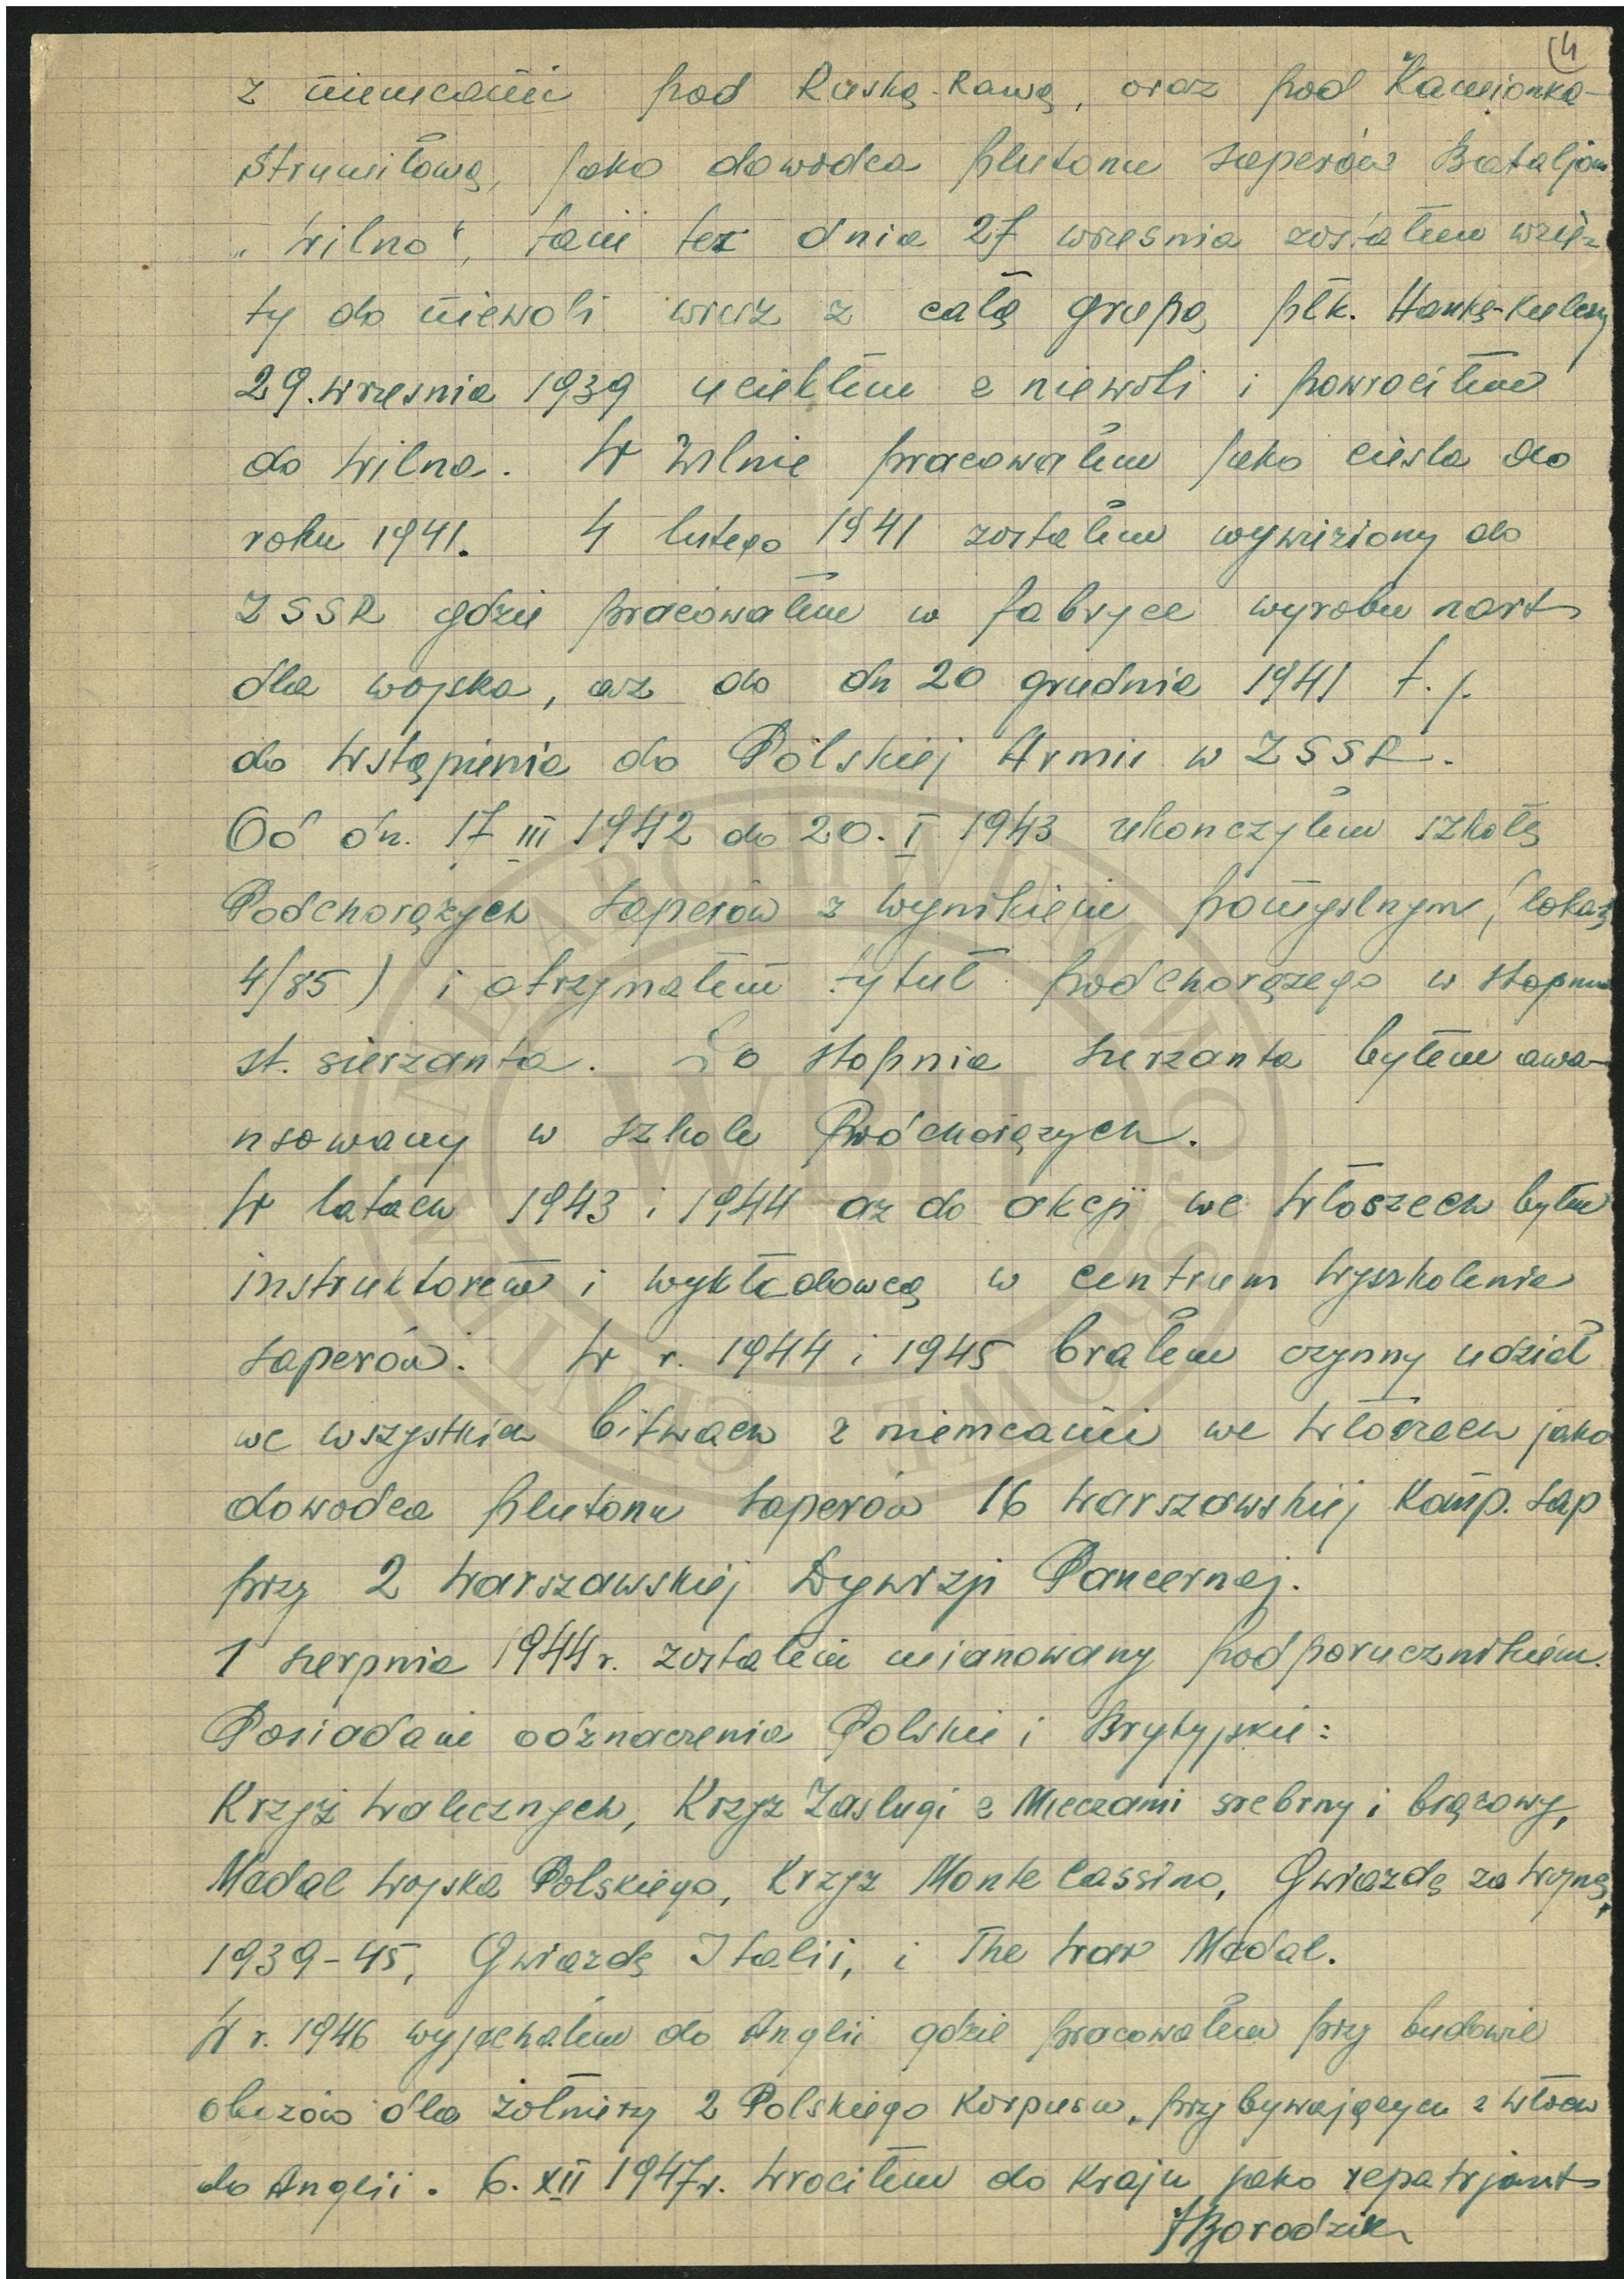 4
z niemcami pod Ruską-Rawą, oraz pod Kamionką-
Strumiłową, jako dowodca plutonu saperów Bataljonu
„Wilno", tam też dnia 27 wrzesnia zostałem wzię-
ty do niewoli wraz z całą grupą płk. Hanki-Kuleszy
29. wrzesnia 1939 uciekłem z niewoli i powrociłem
do Wilna. W Wilnie pracowałem jako ciesla do
roku 1941. 4 lutego 1941 zostałem wywieziony do
ZSSR gdzie pracowałem w fabryce wyrobu nart
dla wojska, aż do dn 20 grudnia 1941 t. j.
do wstąpienia do Polskiej Armii w ZSSR.
Od dn. 17 III 1942 do 20. I 1943 ukonczyłem szkołę
Podchorążych Saperów z wynikiem pomyslnym, (lokata
4/85) i otrzymałem tytuł podchorążego w stopniu
st. sierzanta. Do stopnia sierzanta byłem awa-
nsowany w szkole Podchorążych.
W latach 1943 i 1944 az do akcji we Włoszech byłem
instruktorem i wykładowcą w Centrum Wyszkolenia
Saperów. W r. 1944 i 1945 brałem czynny udział
we wszystkich bitwach z niemcami we Włoszech jako
dowodca plutonu saperów 16 Warszawskiej Komp. Sap
przy 2 Warszawskiej Dywizji Pancernej.
1 sierpnia 1944 r. zostałem mianowany podporucznikiem.
Posiadam odznaczenia Polskie i Brytyjskie:
Krzyż Walecznych, Krzyż Zasługi z Mieczami srebrny i brązowy,
Medal Wojska Polskiego, Krzyż Monte Cassino, Gwiazdę za Wojnę,
1939-45, Gwiazdę Italii, i The War Medal.
W r. 1946 wyjechałem do Anglii gdzie pracowałem przy budowie
obozów dla żołnierzy 2 Polskiego Korpusu, przybywających z Włoch
do Anglii. 6. XII 1947 r. wrociłem do Kraju jako repatrjant
Borodzik
CENTRALNE ARCHIWUM WOJSKOWE
WBH